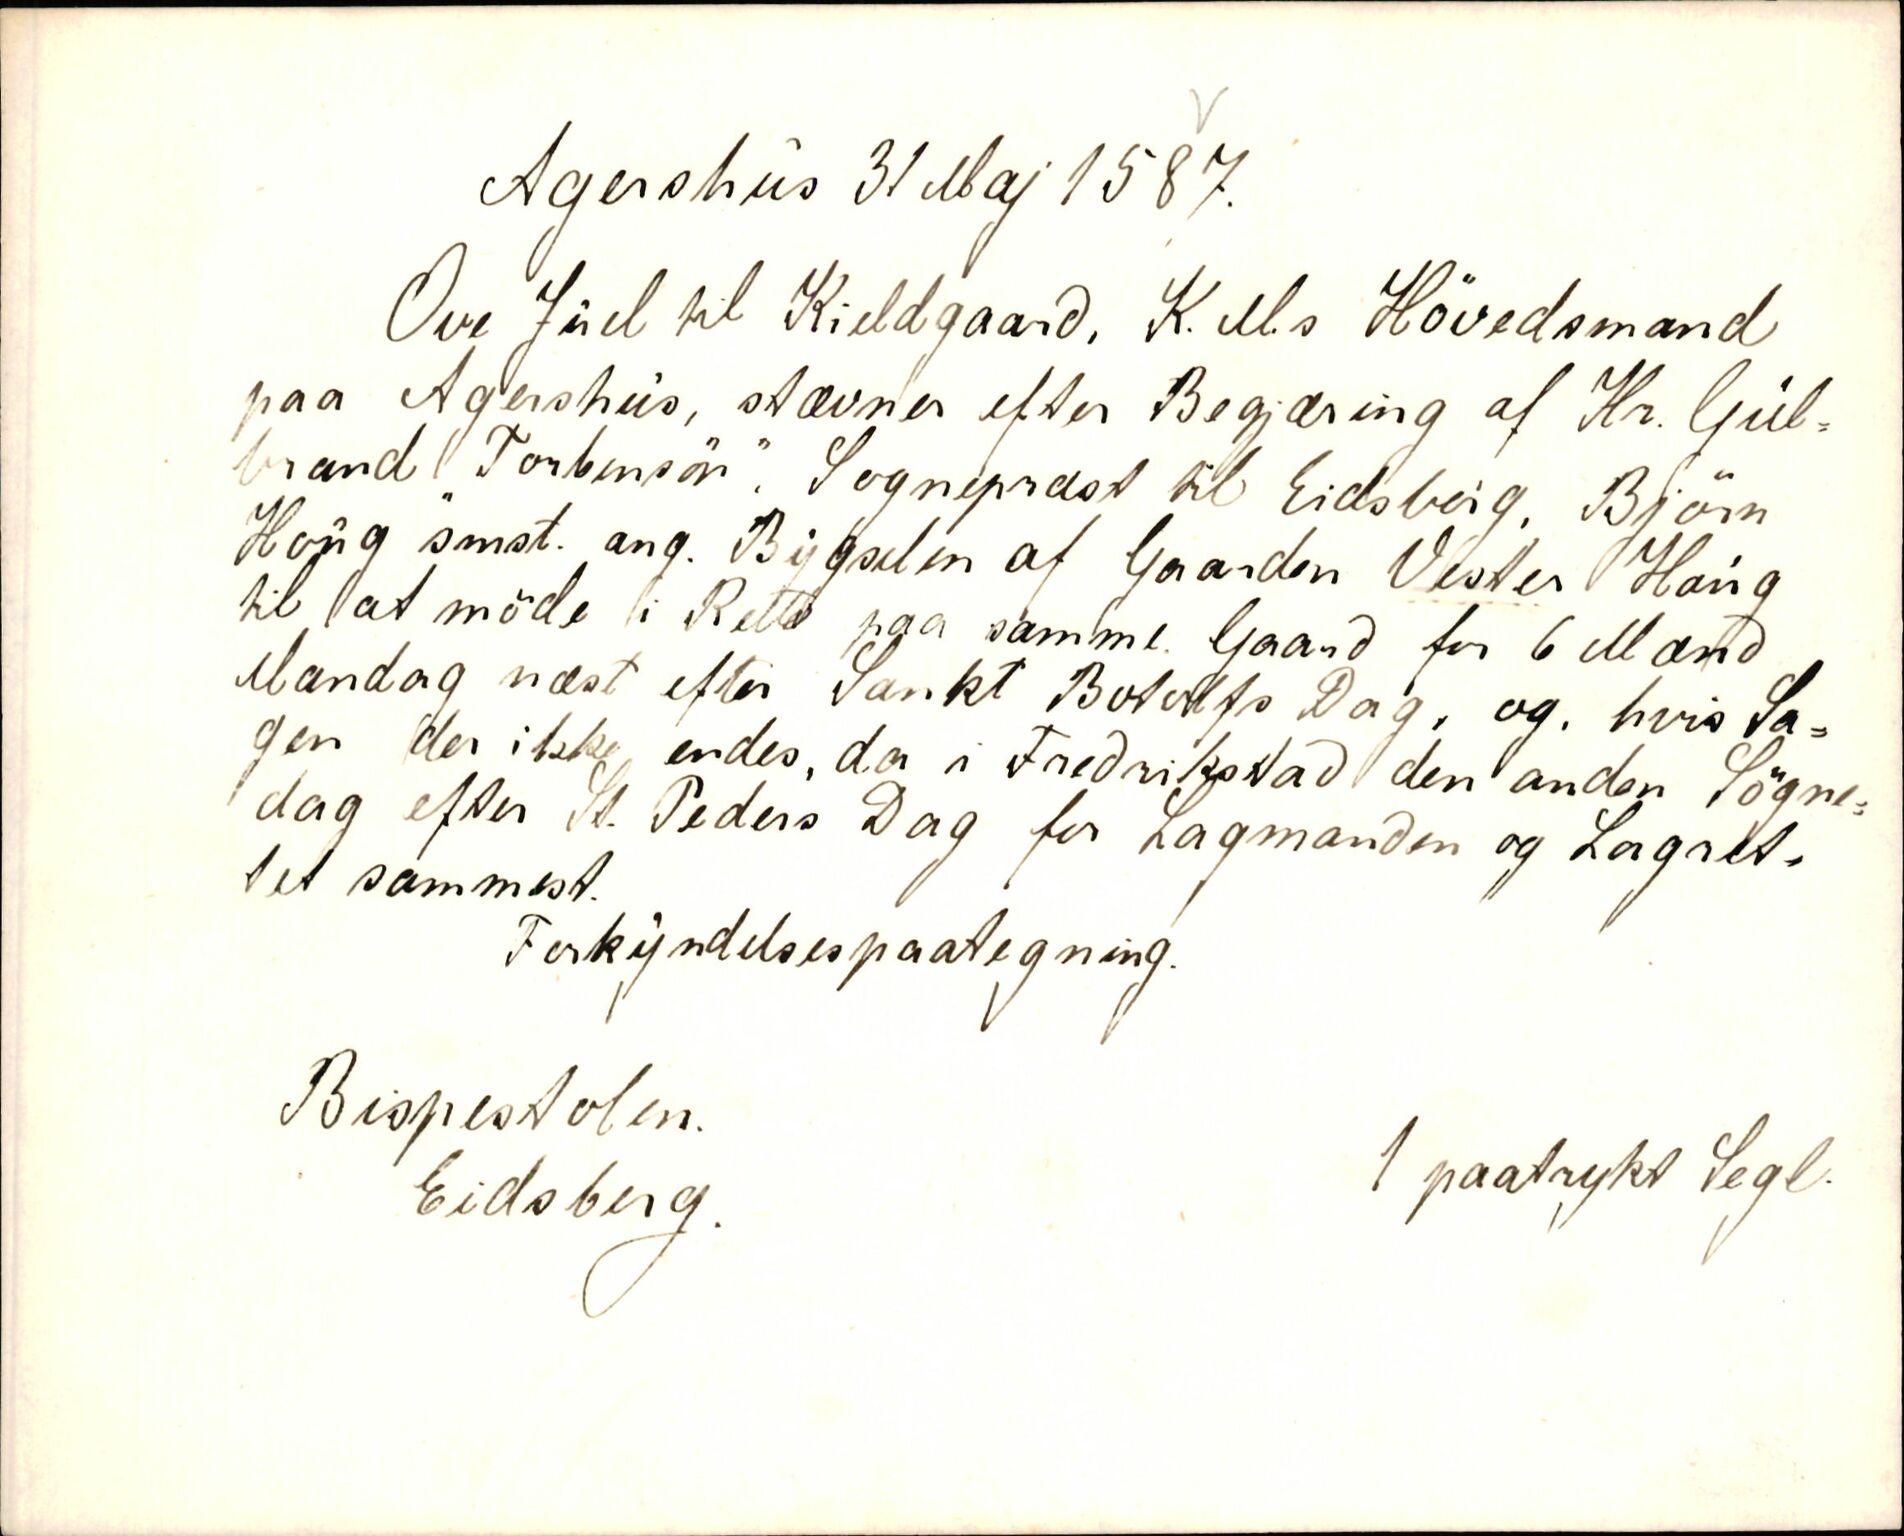 Agershus 31 Maj 1587.
Ove Juel til Kieldgaard, K. M.s Hövedsmand
paa Agershus, stævner efter Begjæring af Hr. Gul-
brand Torbensön, Sogneprest til Eidsberg, Björn
Houg smst. ang. Bygselen af Gaarden Vester Houg
til at möde i Rette paa samme Gaard for 6 Mænd
Mandag næst efter Sankt Botolfs Dag, og, hvis Sa-
gen der ikke endes, da i Fredrikstad den anden Sögne-
dag efter St. Peders Dag for Lagmanden og Lagret-
tet sammest.
Forkyndelsespaategning.
Bispestolen.
Eidsberg.
1 paatrykt Segl.